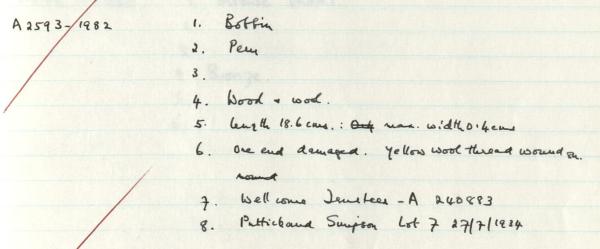 A2593-1982 1. Bobbin
2. Peru
3.
4. Wood + wool.
5. Length 18.6cms. : max. width 0.4cms
6. One end damaged. Yellow wool thread wound on.
round
7. Wellcome Trustees - A 240883
8. Puttick and Simpson Lot 7 27/7/1934